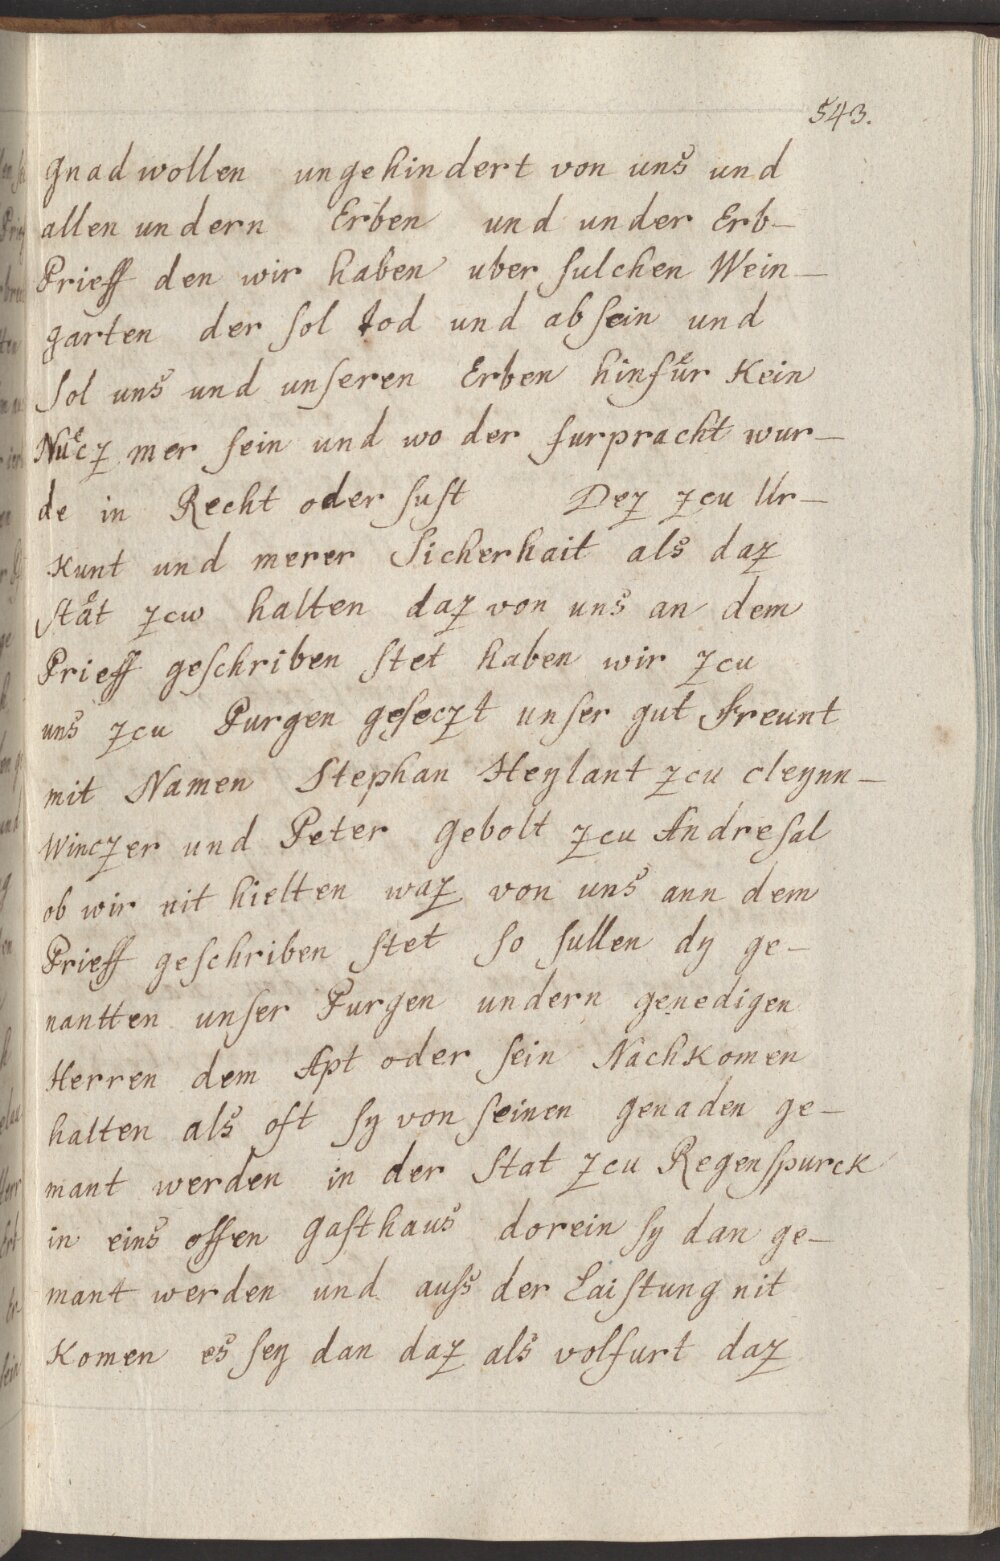 543.
gnad wollen ungehindert von uns und
allen undern Erben und under Erb-
Prieff den wir haben uber sulchen Wein-
garten der sol tod und ab sein und
sol uns und unseren Erben hinfuͤr Kein
Nuͤcz mer sein und wo der furpracht wur-
de in Recht oder sust Dez zcu Ur-
Kunt und merer Sicherhait als daz
Staͤt zcw halten daz von uns an dem
Prieff geschriben stet haben wir zcu
uns zcu Purgen geseczt unser gut Freunt
mit Namen Stephan Heylant zcu cleynn-
Winczer und Peter Gebolt zcu Andresal
ob wir nit hielten waz von uns ann dem
Prieff geschriben stet so sullen dy ge-
nantten unser Purgen undern genedigen
Herren dem Apt oder sein Nachkomen
halten als oft sy von seinen genaden ge-
mant werden in der Stat zcu Regenspurck
in eins offen Gasthaus dorein sy dan ge-
mant werden und auss der Laistung nit
Komen es sey dan daz als volfurt daz